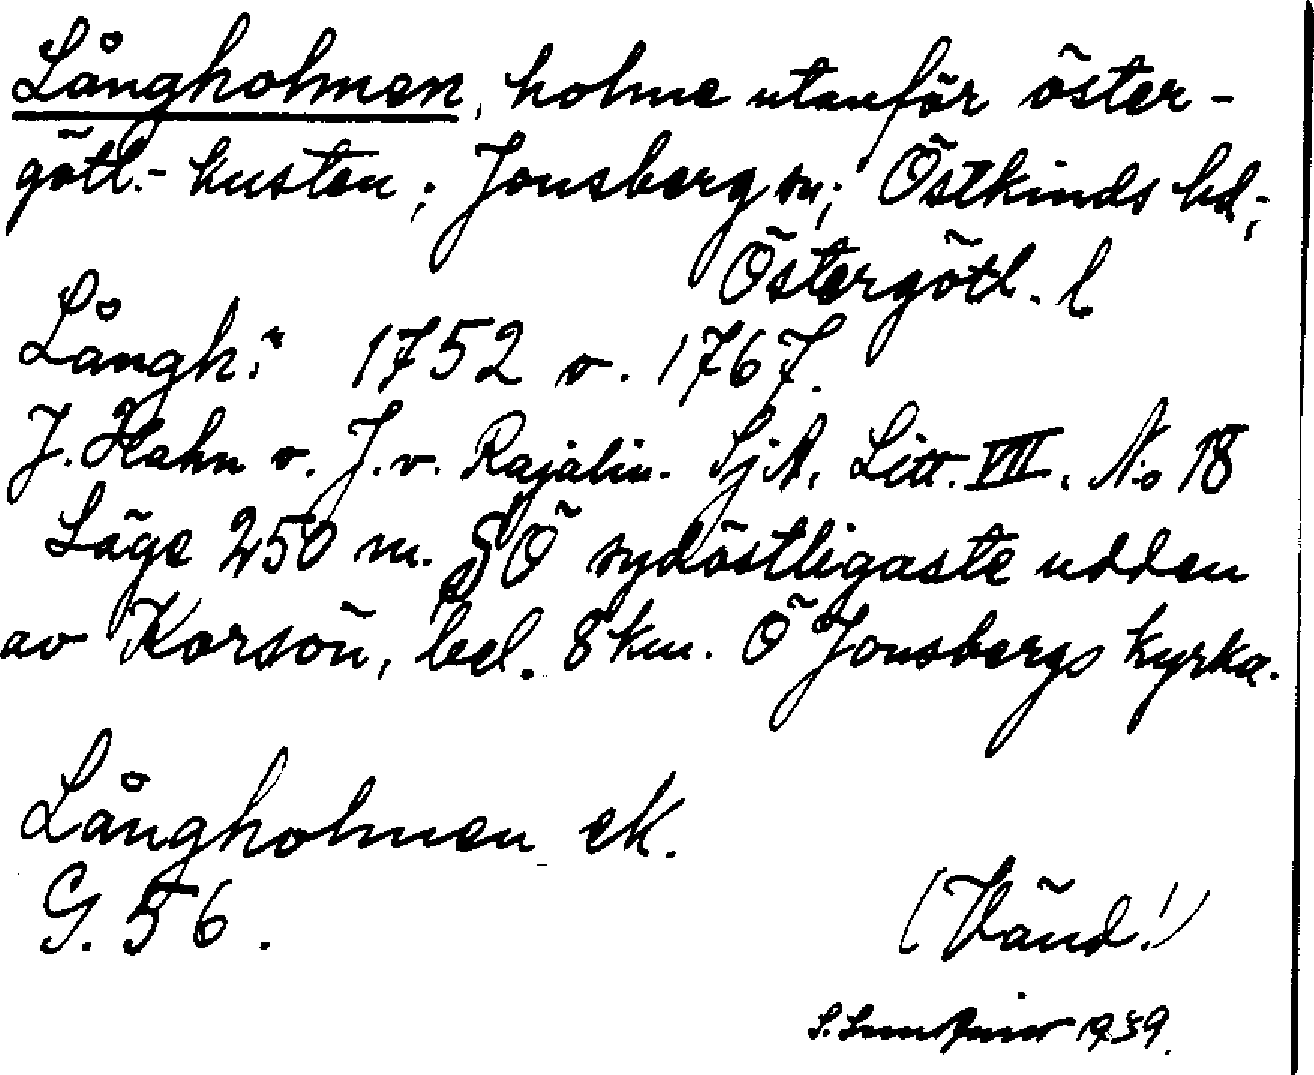 Långholmen, holme utanför öster-
götl.- kusten; Jonsberg sn; Östkinds hd;
Östergötl. l
Långh:n 1752 o. 1767.
J. Hahn o. J. v. Rajalin. SjA. Litt. VIII. No 18
Läge 250 m. SÖ sydöstligaste udden
av Korsön, bel. 8 km. Ö Jonsbergs kyrka.
Långholmen ek.
G. 56.
(Vänd!)
S. 1939.